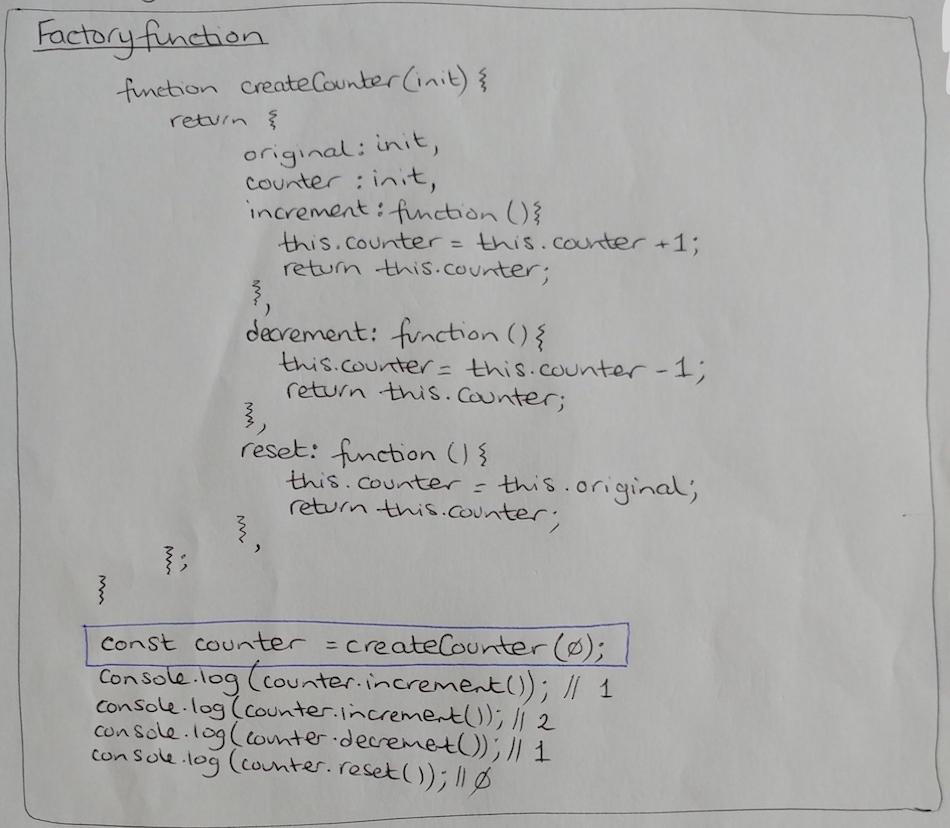 Factory function
function createCounter(init) {
return {
original: init,
counter : init,
increment: function () {
this.counter = this.counter +1;
return this.counter;
},
decrement: function () {
this.counter = this.counter -1;
return this.counter;
},
reset: function () {
this.counter = this.original;
return this.counter;
},
};
}
const counter = createCounter(0);
console.log(counter.increment()); // 1
console.log(counter.increment()); // 2
console.log(counter.decremet()); // 1
console.log(counter.reset()); // 0